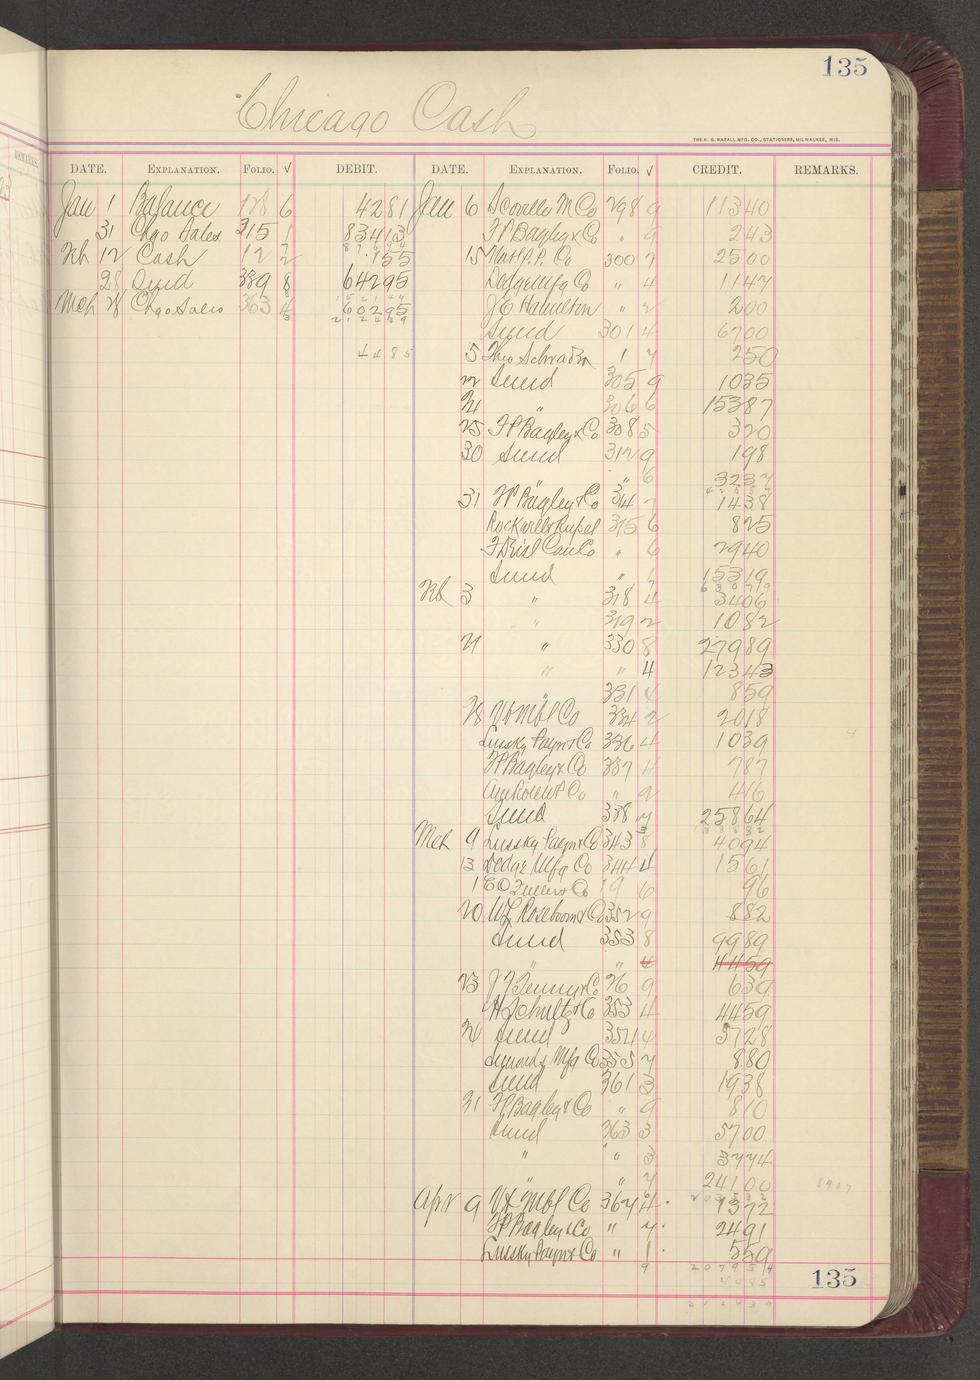 135
Chicago Cash
THE H. G. RAZALL MFG. CO., STATIONERS, MILWAUKEE, WIS.
DATE. EXPLANATION. FOLIO. √ DEBIT. DATE. EXPLANATION. FOLIO. √ CREDIT. REMARKS.
Jan 1 Balance 128 6 4281 Jan 6 Scoville M Co 298 9 11340
31 Chgo Sales 315 1 83413 F P Bagley & Co " 9 243
Feb 12 Cash 12 2 155 15 Natl P. P. Co 300 7 2500
28 Sund 339 8 64295 Dodge Mfg Co " 4 1147
Mch 28 Chgo Sales 363 4 60295 J E Hamilton " 2 200
212439 Sund 301 4 6700
4485 5 Theo Schrader 1 7 250
22 Sund 305 9 1035
24 " 306 6 15387
25 F P Bagley & Co 308 5 320
30 Sund 312 9 198
" 6 3237
31 F P Bagley & Co 314 7 1438
Rockwell & Rupel 315 6 825
" 6 2940
Sund " 1 15319
Feb 3 " 318 4 3406
" 319 2 1082
21 " 330 8 27989
" " 4 12343
" 331 4 859
28 334 2 2018
Lussky Payn & Co 336 4 1039
F P Bagley & Co 337 4 787
" 2 416
Sund 338 7 25864
Mch 9 Lussky Payn & Co 343 8 4094
13 Dodge Mfg Co 344 4 1561
1 19 6 96
20 W L Roseboom & Co 352 9 882
Sund 353 8 9989
" " 4 4459
23 J F Tenny & Co 26 9 639
H Schultz & Co 353 4 4459
24 Sund 354 4 5728
Simonds Mfg Co 355 7 880
Sund 361 3 1938
31 F P Bagley & Co " 9 810
Sund 363 3 5700
" " 3 3774
" " 7 24100
8907
Apr 9 367 4 1372
F P Bagley & Co " 7 2491
Lussky Payn & Co " 1 559
9 207954
135
4485
212439